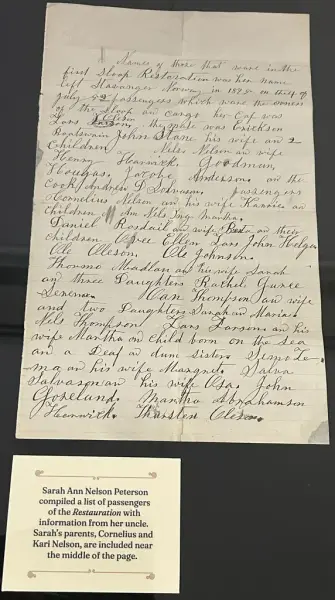 Names of those that ware in the
first Sloop Restoration was her name
left Stavanger Norway in 182 on the 4 of
July 52 passengers which ware the owners
of the Sloop an cargo her Cap was
Lars Olsen the mate was Ericksen
Boatswain John Stane his wife an 2
Children Neles Nelson an wife
Henry Harwick, Goodman,
Thougas, Jacobe Anderson, an the
Cook Andrew D passengers
Kornelius Nelson an his wife Karrie an
children Ann Nels Inga Martha,
Daniel Rosdail an wife Beta an their
children Ovee Ellen Lars John Helga
Ole Oleson, Ole Johnson,
Thormo Madlau an his wife Sarah
an three Daughters Rachel Guree
Serena, Oan Thompson an wife
and two Daughters Sarah an Maria
Nels Thompson Lars Larson an his
wife Martha an Child born on the Sea
an a Deaf an dum sister, Simo Le-
ma an his wife Margret, Salva
an his wife Osa, John
Goseland, Martha Abrahamson
Henwick, Thorsten Oleson
Sarah Ann Nelson Peterson
compiled a list of passengers
of the Restauration with
information from her uncle.
Sarah's parents, Cornelius and
Kari Nelson, are included near
the middle of the page.